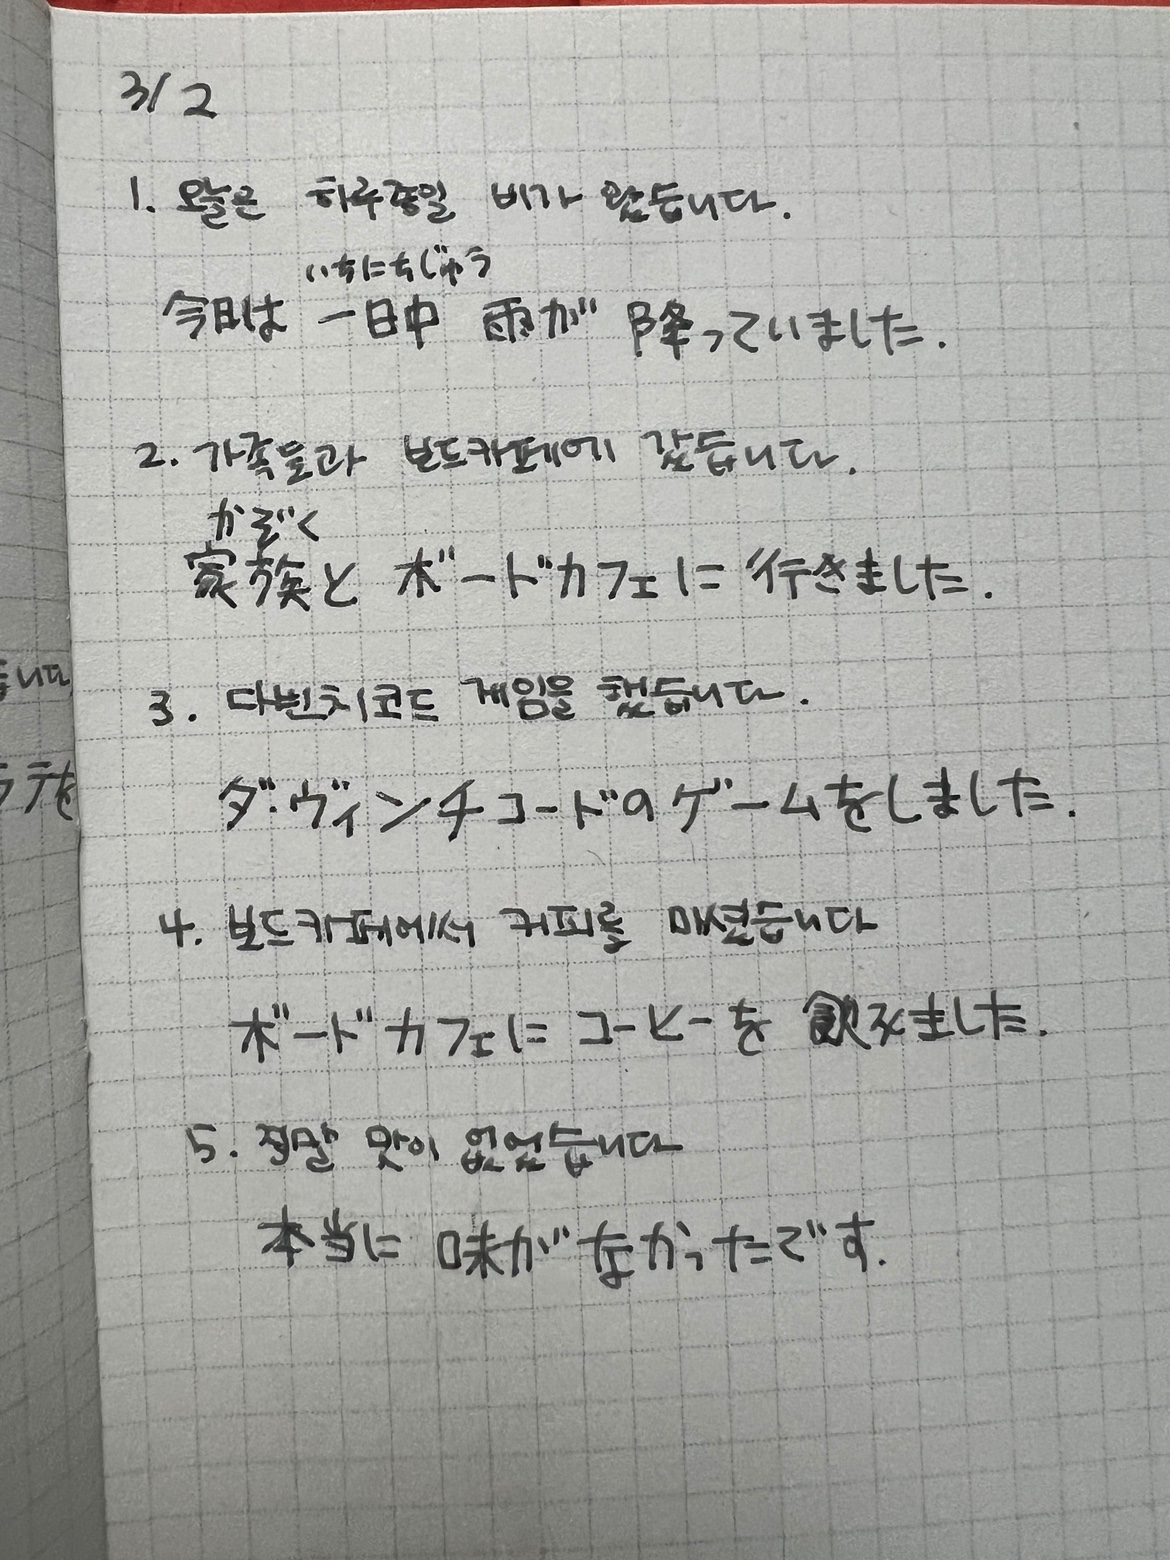 3/2
1. 오늘은 하루종일 비가 왔습니다.
いちにちじゅう
今日は 一日中 雨が 降っていました.
2. 가족들과 보드카페에 갔습니다.
かぞく
家族と ボードカフェに 行きました.
3. 다빈치코드 게임을 했습니다.
ダ·ヴィンチコードのゲームをしました.
4. 보드카페에서 커피를 마셨습니다
ボードカフェに コーヒーを 飲みました.
5. 정말 맛이 없었습니다
本当に 味がなかったです.
습니다
ラテを